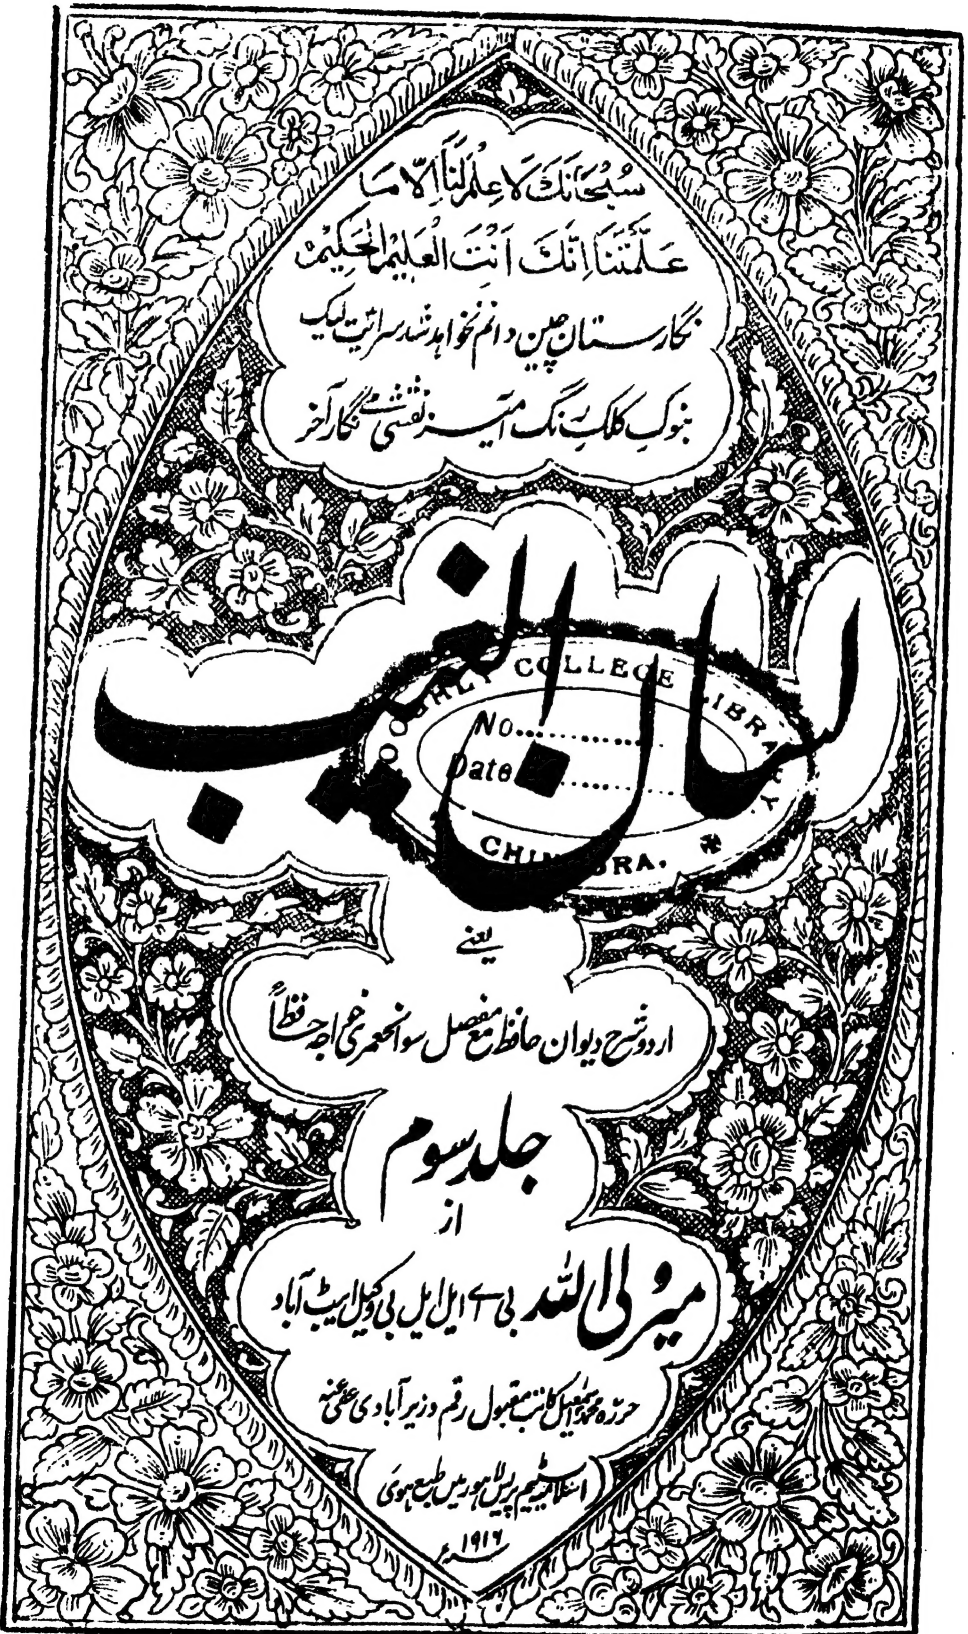 سُبْحَانَكَ لَا عِلْمَ لَنَا اِلَّا مَا
عَلَّمْتَنَا اِنَّكَ اَنْتَ الْعَلِيْمُ الْحَكِيْمُ
نگارستان چین دانم نخواہد شد سرایت لیک
بنوکِ کلکِ رنگ آمیز نقشے مے نگار آخر
لسان الغیب
HOOGHLY COLLEGE LIBRARY.
No.............
Date.............
CHINSURA.
یعنے
اردو شرح دیوان حافظ مع مفصل سوانحعمری خواجہ حافظؒ
جلد سوم
از
میر ولی اللہ بی اے ایل ایل بی وکیل ایبٹ آباد
حررہ محمد اسمٰعیل کاتب مقبول رقم وزیرآبادی عفی عنہ
اسلامیہ سٹیم پریس لاہور میں طبع ہوئی
۱۹۱۶ء